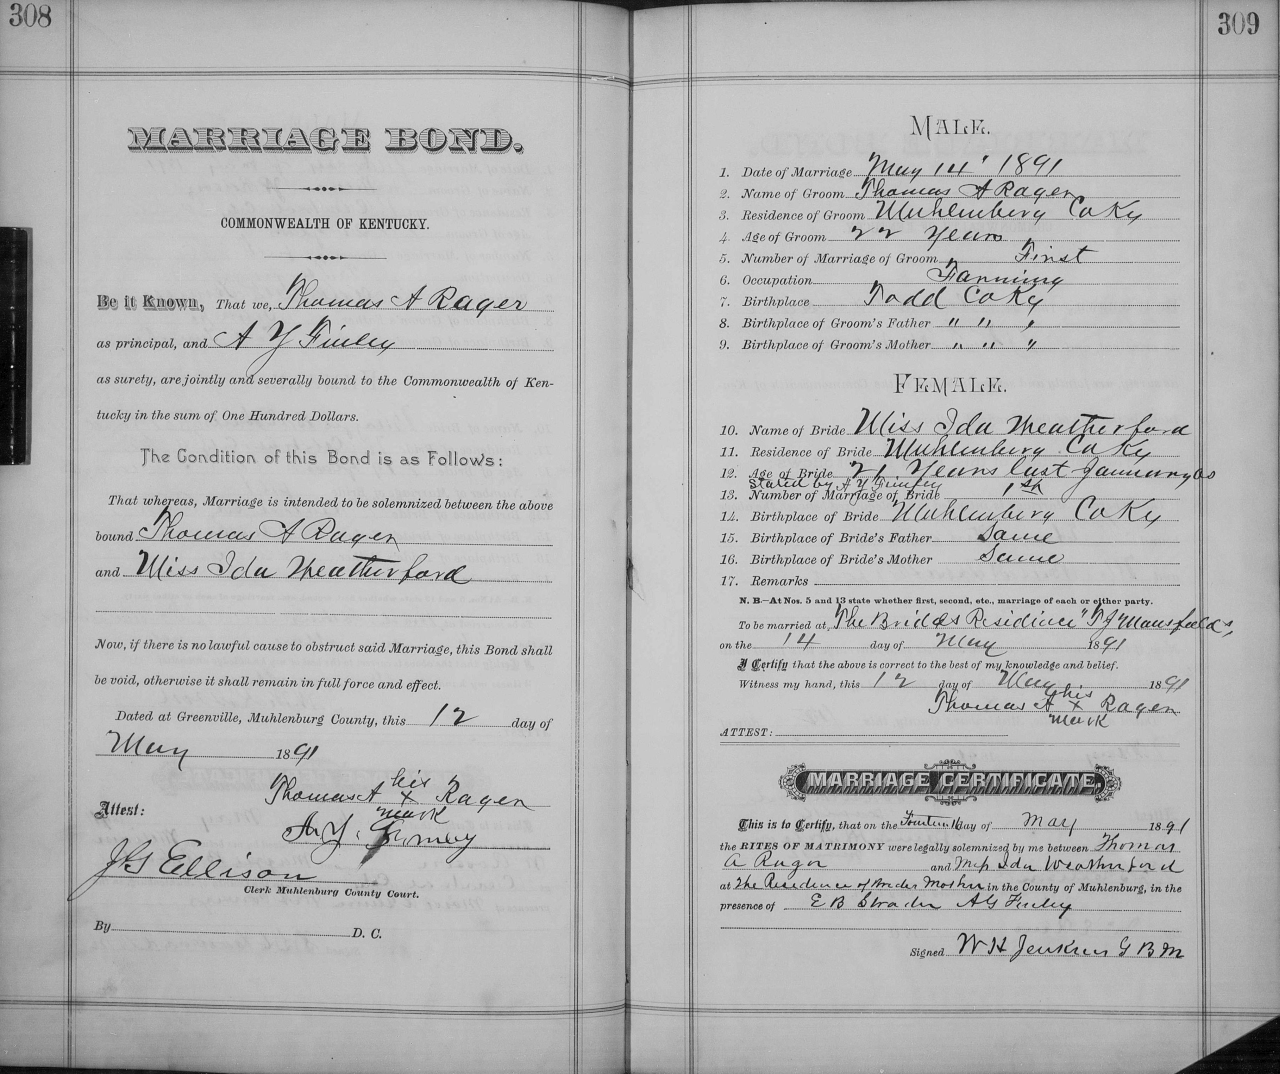 308
MARRIAGE BOND.
COMMONWEALTH OF KENTUCKY.
Be it Known, That we, Thomas A Rager
as principal, and A Y Finley
as surety, are jointly and severally bound to the Commonwealth of Ken-
tucky in the sum of One Hundred Dollars.
The Condition of this Bond is as Follows:
That whereas, Marriage is intended to be solemnized between the above
bound Thomas A Rager
and Miss Ida Weatherford
Now, if there is no lawful cause to obstruct said Marriage, this Bond shall
be void, otherwise it shall remain in full force and effect.
Dated at Greenville, Muhlenburg County, this 12 day of
May 1891
his
Thomas A x Rager
mark
Attest:
A. Y.
J G Ellison
Clerk Muhlenburg County Court.
By D. C.
309
MALE.
1. Date of Marriage May 14" 1891
2. Name of Groom Thomas A Rager
3. Residence of Groom Muhlenberg Co Ky
4. Age of Groom 22 Years
5. Number of Marriage of Groom First
6. Occupation Farming
7. Birthplace Todd Co Ky
8. Birthplace of Groom's Father " " "
9. Birthplace of Groom's Mother " " "
FEMALE.
10. Name of Bride Miss Ida Weatherford
11. Residence of Bride Muhlenberg Co Ky
12. Age of Bride 21 Years last January as
Stated by A Y Finley
13. Number of Marriage of Bride 1st
14. Birthplace of Bride Muhlenberg Co Ky
15. Birthplace of Bride's Father Same
16. Birthplace of Bride's Mother Same
17. Remarks
N. B.—At Nos. 5 and 13 state whether first, second, etc., marriage of each or either party.
To be married at The Brides Residence" T J Mansfield's,
on the 14 day of May 1891
I Certify that the above is correct to the best of my knowledge and belief.
Witness my hand, this 12 day of May 1891
his
Thomas A x Rager
mark
ATTEST:
MARRIAGE CERTIFICATE.
This is to Certify, that on the Fourteenth day of May 1891
the RITES OF MATRIMONY were legally solemnized by me between Thomas
A Rager and Miss Ida Weatherford
at The Residence of Brides Mother in the County of Muhlenburg, in the
presence of E B Strader A G Finley
Signed W H Jenkins G B M